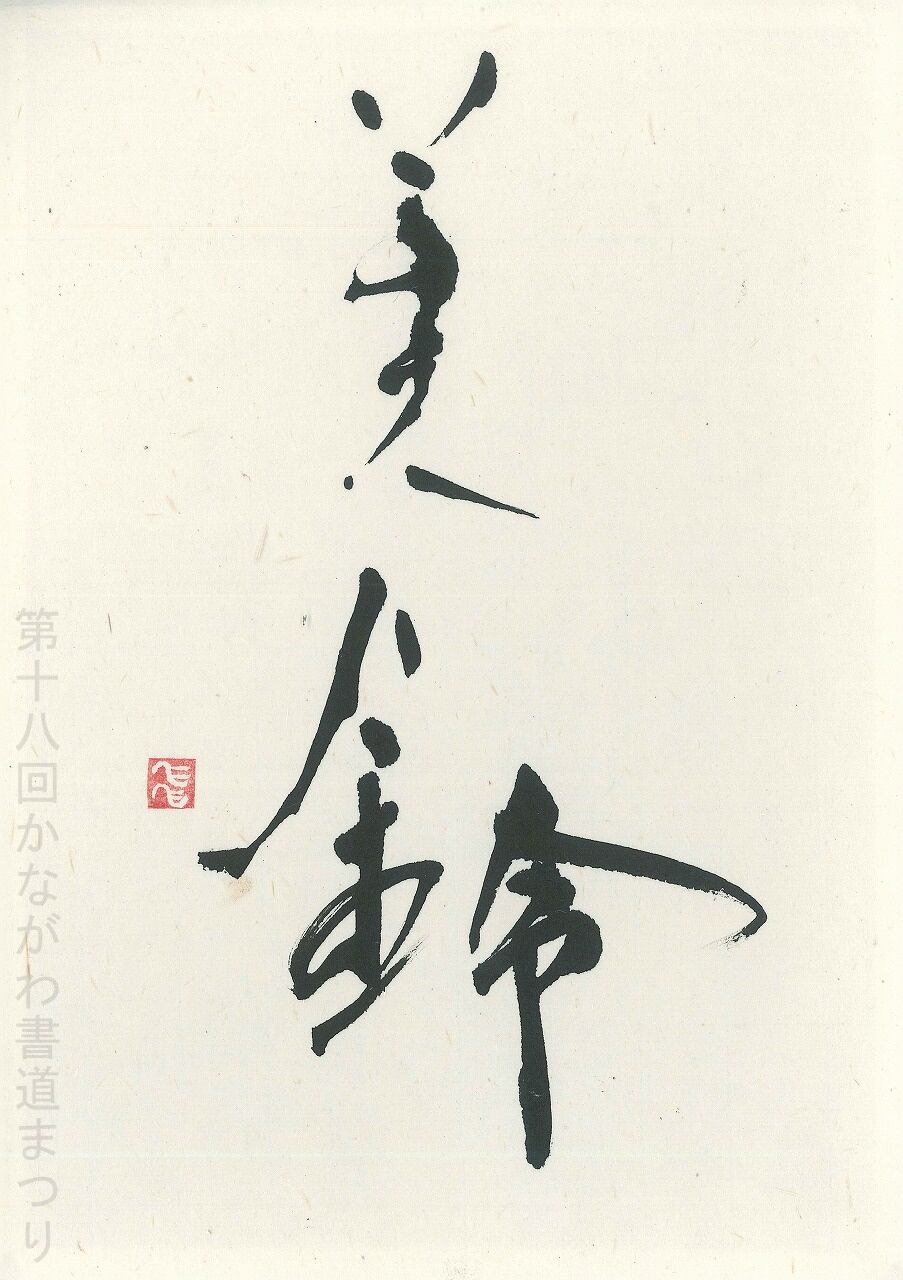 美鈴
第十八回かながわ書道まつり